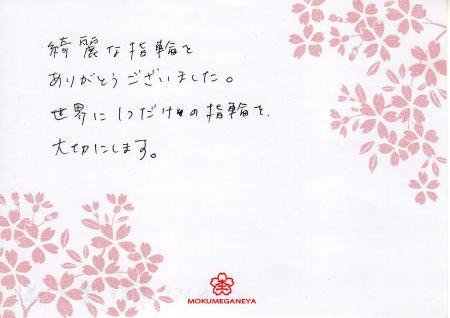 綺麗な指輪を
ありがとうございました。
世界に1つだけの指輪を、
大切にします。
MOKUMEGANEYA